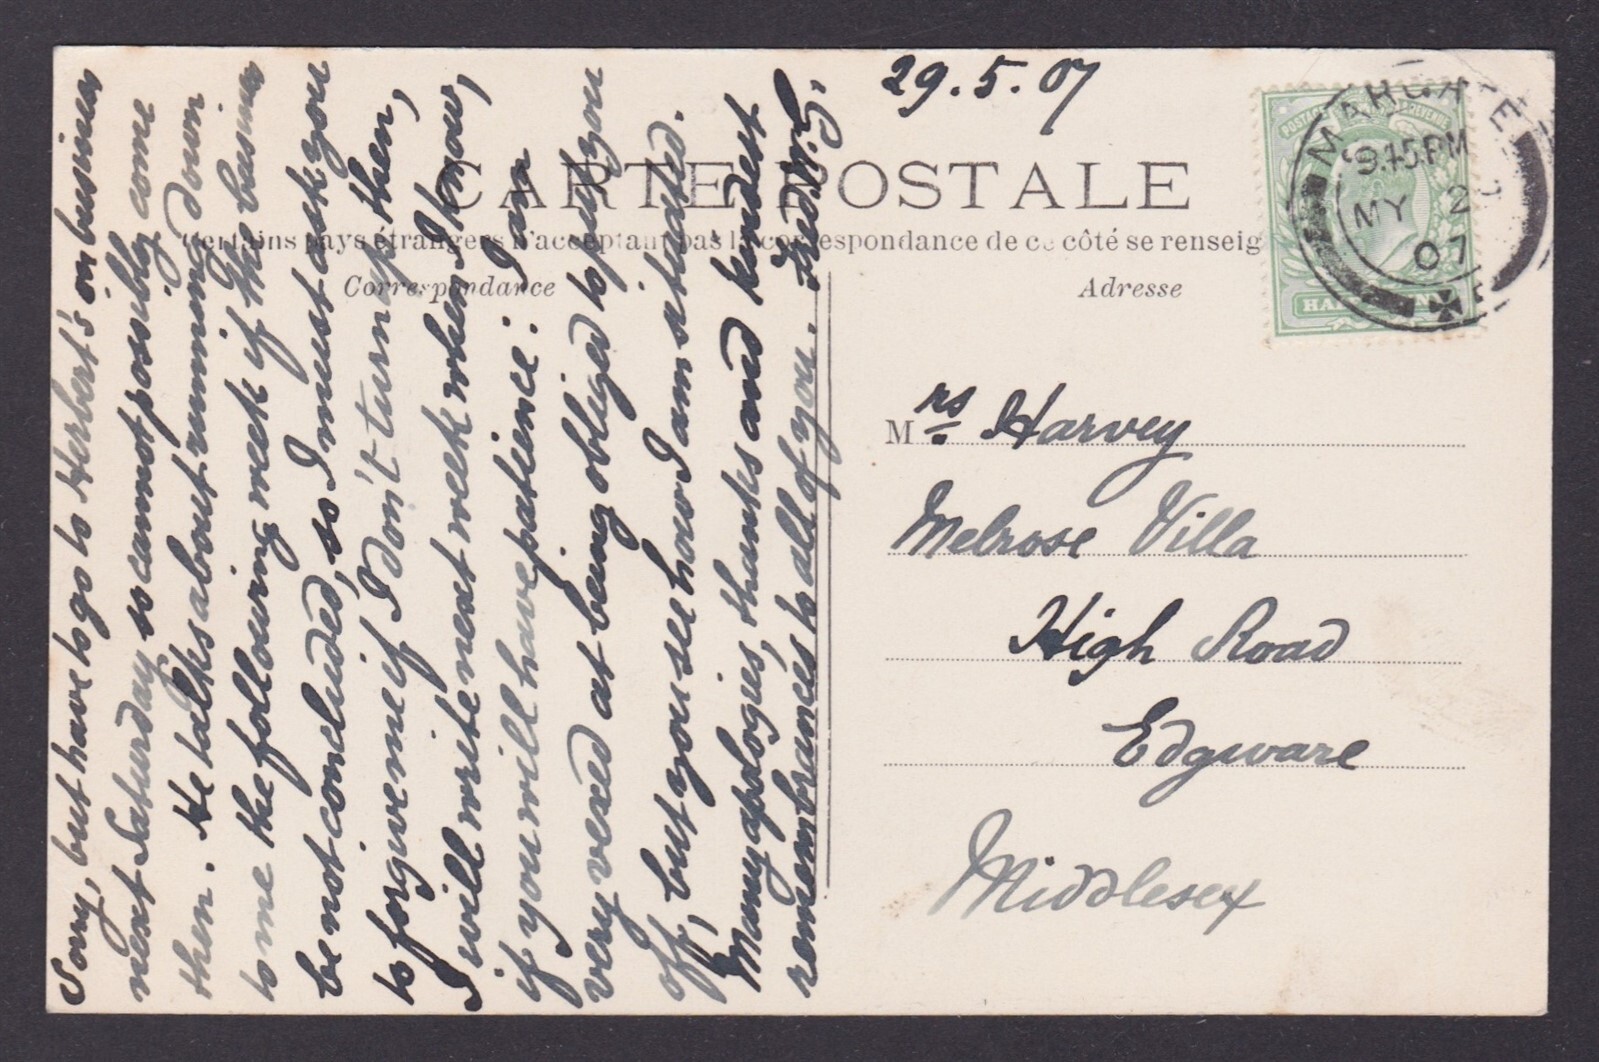 29.5.07
CARTE POSTALE
Certains pays étrangers n'acceptant pas la correspondance de ce côté se renseig
Correspondance
Adresse
POSTAGE REVENUE
HALF
MARGATE
9.45PM
MY 29
07
Sorry, but have to go to Herbert's on business
next Saturday so cannot possibly come
then. He talks about running down
to me the following week if the business
be not concluded, so I must ask you
to forgive me if I don't turn up then,
I will write next week when I know,
if you will have patience: I am
very vexed at being obliged to put you
off, but you see how I am situated.
Many apologies, thanks and kindest
remembrances to all of you. Fred W. G.
Mrs Harvey
Melrose Villa
High Road
Edgware
Middlesex